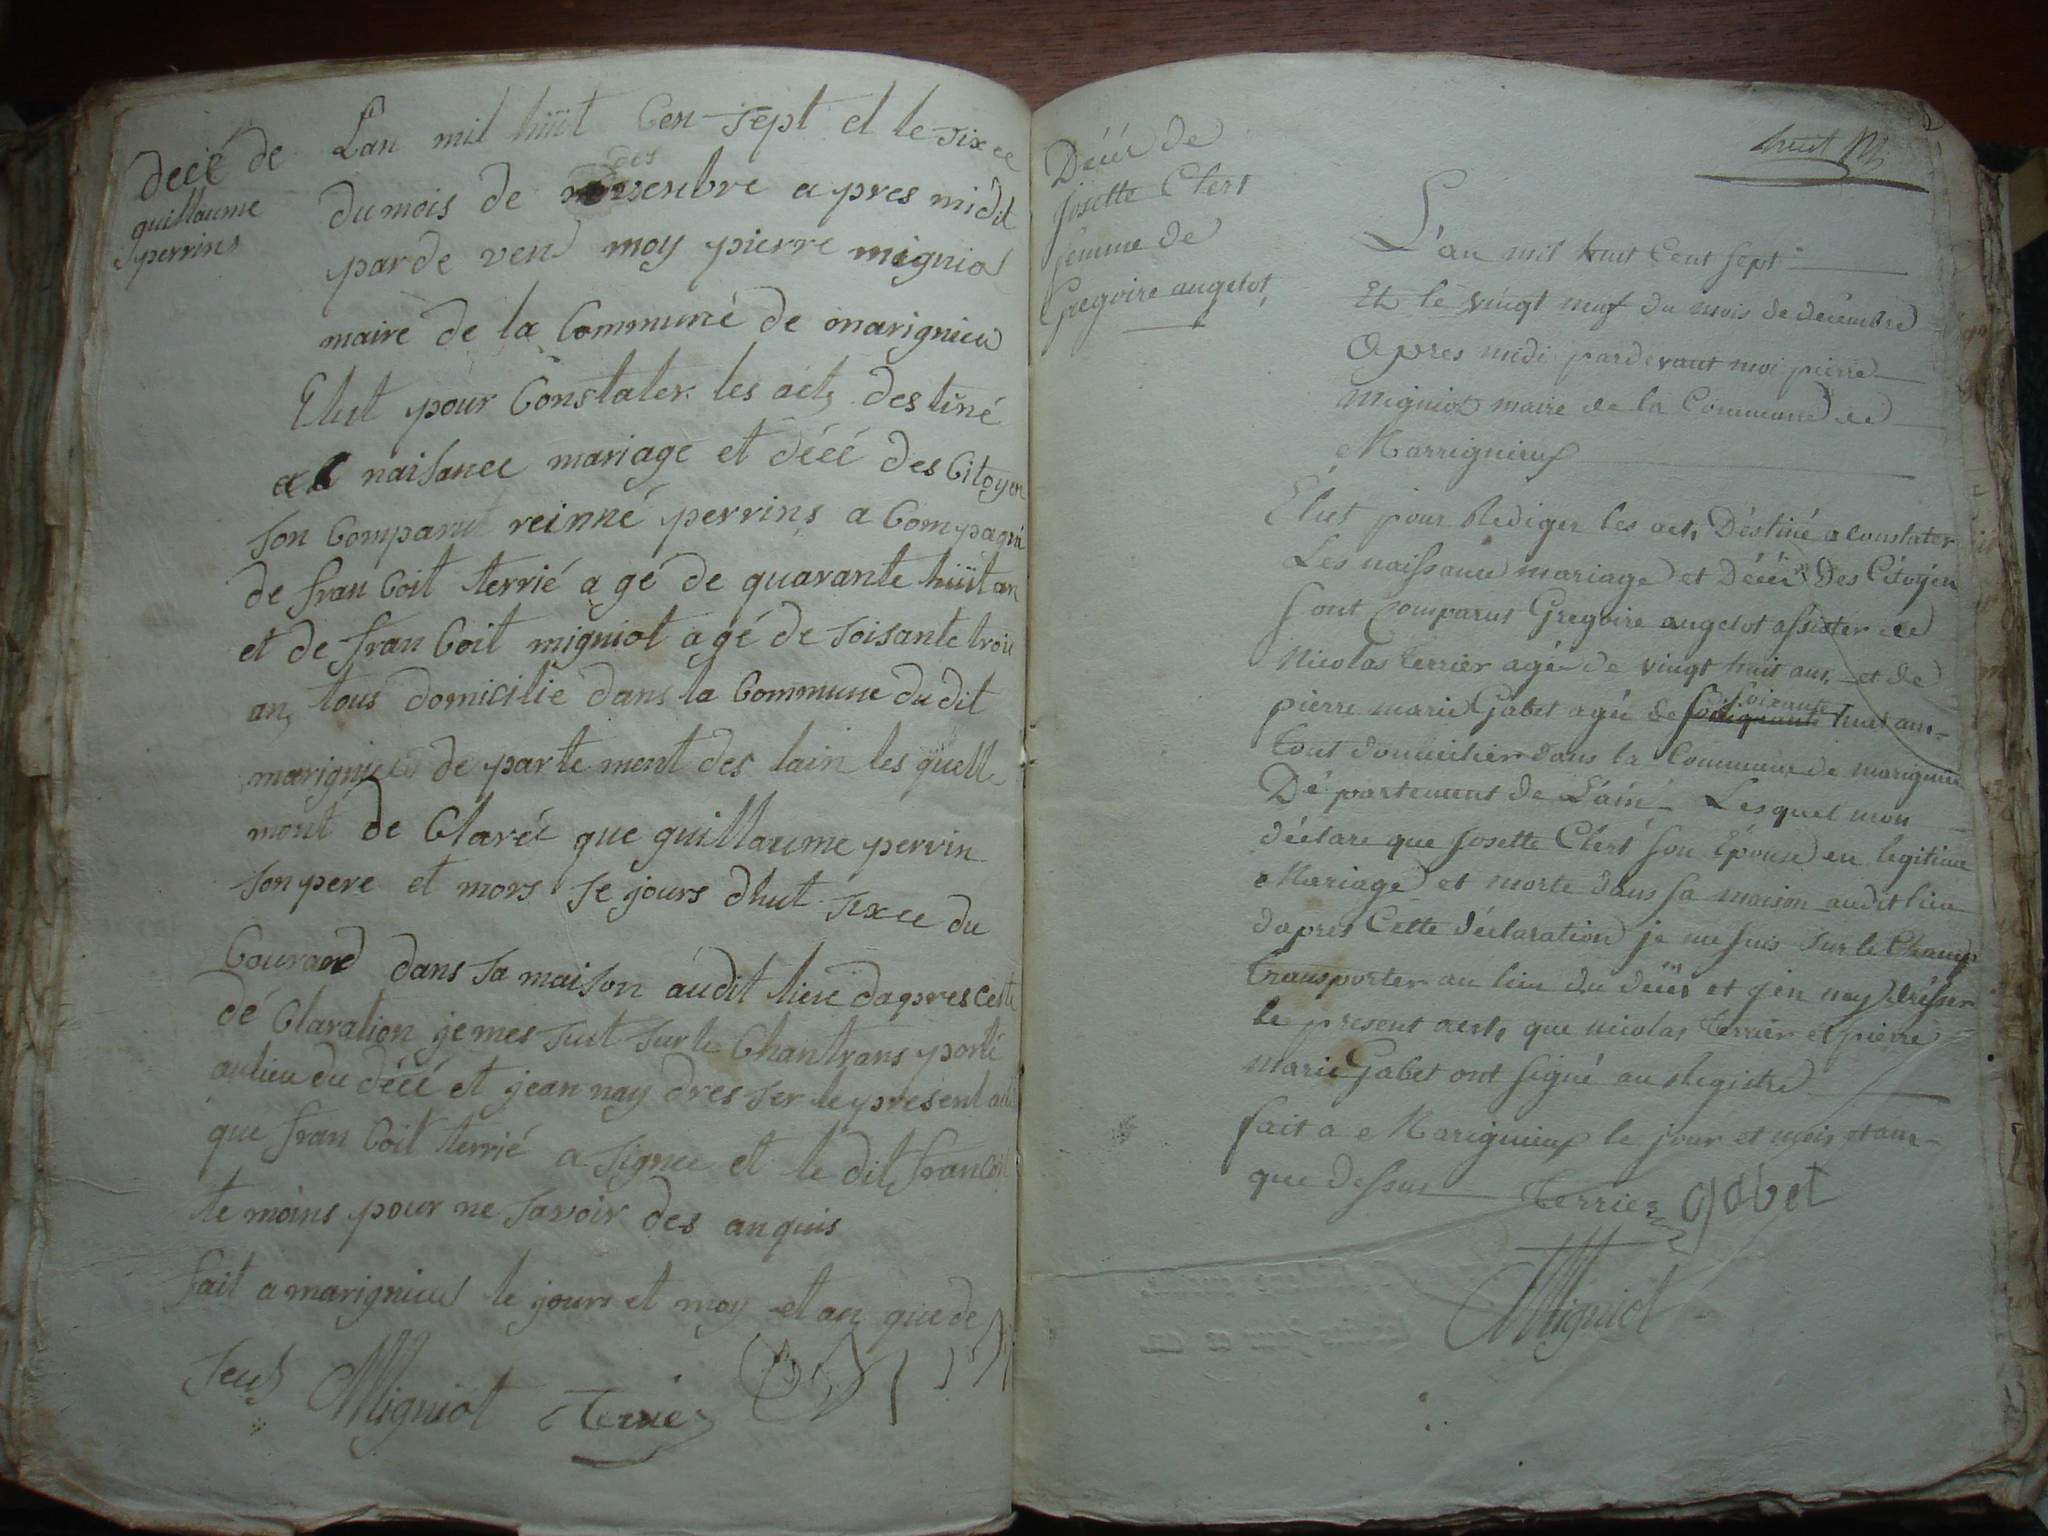 decé de
guillaume
perrins
Lan mil huit Cen sept et le sixce
du mois de novenbre a pres midit
par de ven moy pierre migniot
maire de la Communé de marignieu
Elut pour Constater les act, destiné
a naisance mariage et décé des Citoyen
son Comparut reinné perrins a Compagné
de fran Coit terrié a gé de quarante huit an
et de fran Coit migniot a gé de soisante trois
an, tous domicilie dans la Commune du dit
marignieu de parte ment des lain les quell
mont de Claréé que guillaume perrin
son pere et mors se jours dhut sixce du
Courand dans sa maison audit lieu dapres cette
dé Claration je mes suit sur le Chan trans porté
au lieu du décé et jean nay dres ser le présent act
que fran Coit terrié a signee et le dit, francoit
te moins pour ne savoir des an quis
fait a marignieu le jours et moy et an que de
seus Migniot terrier
Décés de
Josette Clert
femme de
Gregoire angelot,
huit
L'an mil huit Cent sept
Et le vingt neuf du mois de décembre
Apres midi pardevant moi pierre
Migniot maire de la Commune de
Marrignieux
Élut pour Rediger les act, Déstiné a constater
Les naissance mariage et Décés Des Citoyen
Sont Comparut Gregoire angelot assister de
Nicolas terrier agée de vingt huit ans, et de
soixante
pierre marie Gabet agée de huit ans
tout domicilier dans la Commune de marignieu
Département de L'ain Lesquel mon
déclare que Josette Clert son Épouse en legitime
Mariage et morte dans sa maison audit lieu
dapres Cette déclaration je me suis sur le Champ
transporter au lieu du décés et jen nay drésser
le present act, que nicolas terrier et pierre
Marie Gabet ont signé au Registre
fait a Marignieux le jour et mois et ans
que dessus terrier gabet
Migniot